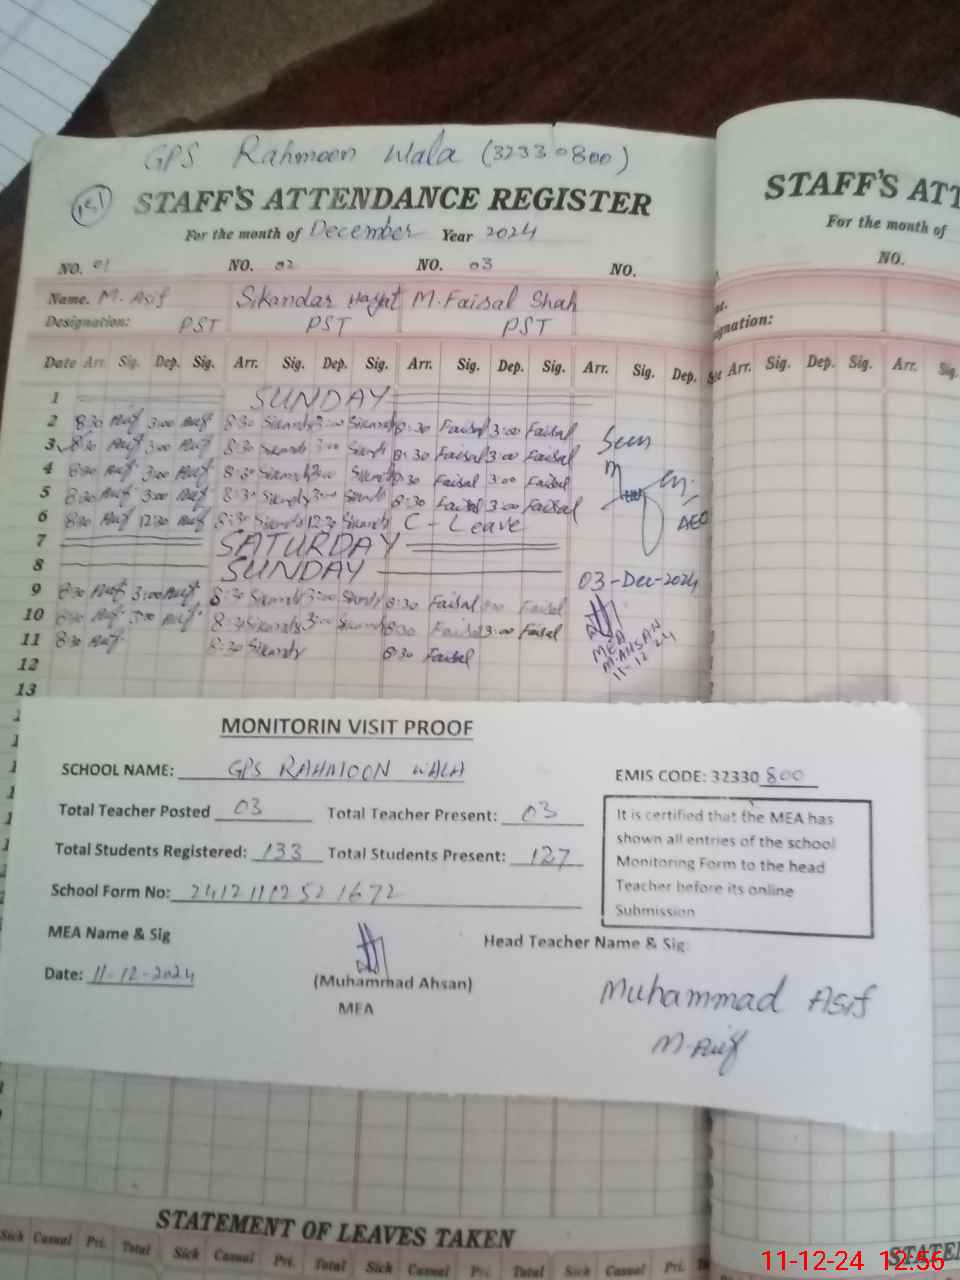 GPS Rahmoon Wala (32330800)
151 STAFF'S ATTENDANCE REGISTER
For the month of December Year 2024
NO. 01 NO. 02 NO. 03 NO.
Name. M. Asif Sikandar Hayat M. Faisal Shah
Designation: PST PST PST
Date Arr. Sig. Dep. Sig. Arr. Sig. Dep. Sig. Arr. Sig. Dep. Sig. Arr. Sig. Dep.
1 SUNDAY
2 8:30 Asif 3:00 Asif 8:30 Sikandr 3:00 Sikandr 8:30 Faisal 3:00 Faisal
3 8:30 Asif 3:00 Asif 8:30 Sikandr 3:00 Sikandr 8:30 Faisal 3:00 Faisal
4 8:30 Asif 3:00 Asif 8:30 Sikandr 3:00 Sikandr 8:30 Faisal 3:00 Faisal
5 8:30 Asif 3:00 Asif 8:30 Sikandr 3:00 Sikandr 8:30 Faisal 3:00 Faisal
6 8:30 Asif 12:30 Asif 8:30 Sikandr 12:30 Sikandr C - Leave
7 SATURDAY
8 SUNDAY
9 8:30 Asif 3:00 Asif 8:30 Sikandr 3:00 Sikandr 8:30 Faisal 3:00 Faisal
10 8:30 Asif 3:00 Asif 8:30 Sikandr 3:00 Sikandr 8:30 Faisal 3:00 Faisal
11 8:30 Asif 8:30 Sikandr 8:30 Faisal
12
13
Seen
AEO
03-Dec-2024
MEA
M. AHSAN
11-12-24
STAFF'S ATT
For the month of
NO.
Designation:
Arr. Sig. Dep. Sig. Arr. Sig.
MONITORIN VISIT PROOF
SCHOOL NAME: GPS RAHMOON WALA
EMIS CODE: 32330800
Total Teacher Posted 03 Total Teacher Present: 03
Total Students Registered: 133 Total Students Present: 127
School Form No: 2412111252 1672
It is certified that the MEA has
shown all entries of the school
Monitoring Form to the head
Teacher before its online
Submission
MEA Name & Sig
Head Teacher Name & Sig:
Date: 11-12-2024
(Muhammad Ahsan)
MEA
Muhammad Asif
M. Asif
STATEMENT OF LEAVES TAKEN
Sick Casual Pri. Total Sick Casual Pri. Total Sick Casual Pri. Total Sick Casual Pri.
STATE
11-12-24 12:56